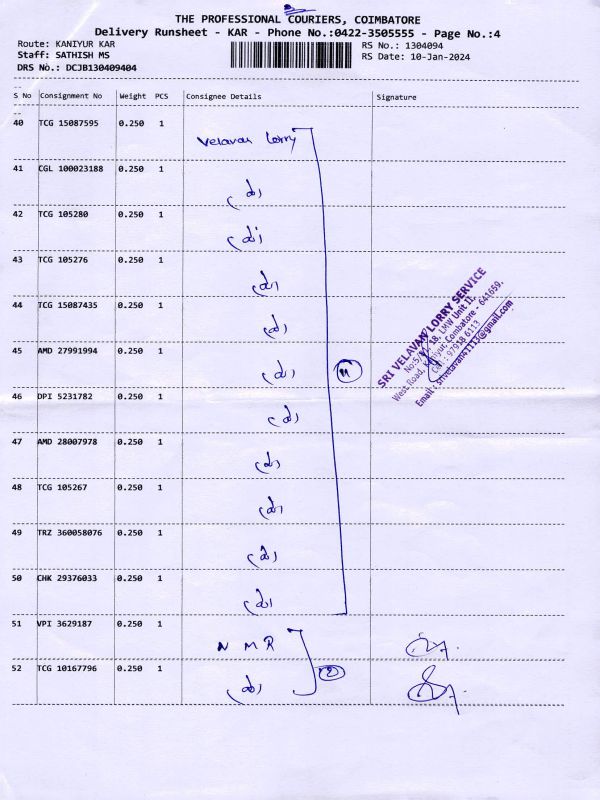 THE PROFESSIONAL COURIERS, COIMBATORE
Delivery Runsheet - KAR - Phone No.:0422-3505555 - Page No.:4
Route: KANIYUR KAR
RS No.: 1304094
Staff: SATHISH MS
RS Date: 10-Jan-2024
DRS No.: DCJB130409404
S No Consignment No Weight PCS Consignee Details Signature
40 TCG 15087595 0.250 1
Velavan Lorry
41 CGL 100023188 0.250 1
42 TCG 105280 0.250 1
43 TCG 105276 0.250 1
44 TCG 15087435 0.250 1
45 AMD 27991994 0.250 1
11
46 DPI 5231782 0.250 1
47 AMD 28007978 0.250 1
48 TCG 105267 0.250 1
49 TRZ 360058076 0.250 1
50 CHK 29376033 0.250 1
51 VPI 3629187 0.250 1
N M R
52 TCG 10167796 0.250 1
2
SRI VELAVAN LORRY SERVICE
LMW Unit II,
West Road, Kaniyur, Coimbatore - 641659.
Cell : 97918 6113
Email : srivelavan41113@gmail.com